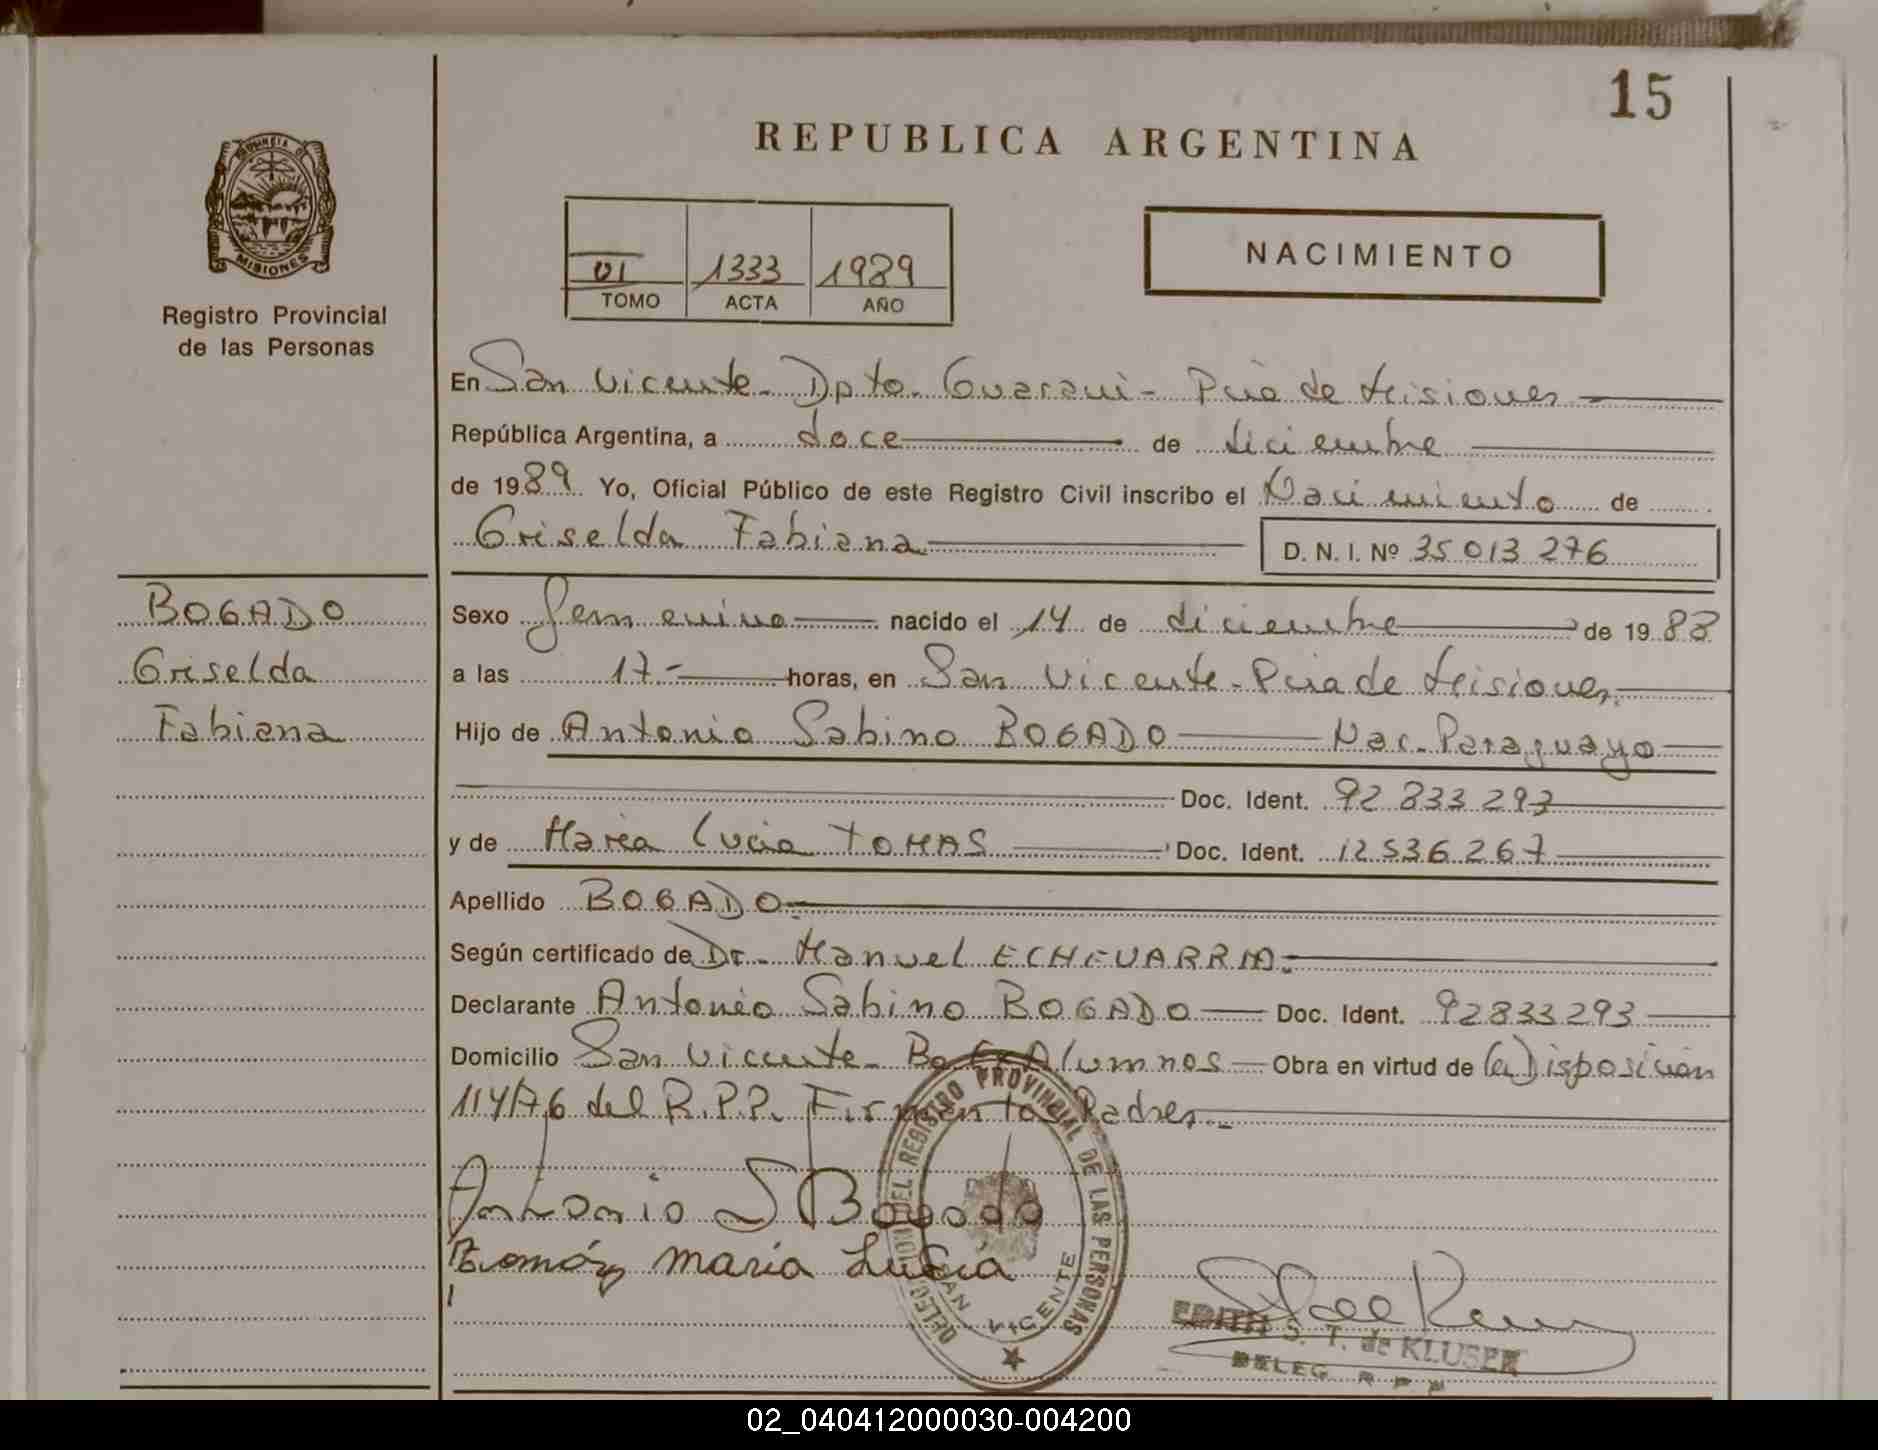 15
REPUBLICA ARGENTINA
PROVINCIA DE
MISIONES
Registro Provincial
de las Personas
VI 1333 1989
TOMO ACTA AÑO
NACIMIENTO
En San Vicente - Dpto. Guaraní - Pcia de Misiones
República Argentina, a doce de diciembre
de 1989. Yo, Oficial Público de este Registro Civil inscribo el Nacimiento de
Griselda Fabiana D. N. I. Nº 35 013 276
BOGADO
Griselda
Fabiana
Sexo Femenino nacido el 14 de diciembre de 1988
a las 17- horas, en San Vicente - Pcia de Misiones
Hijo de Antonio Sabino BOGADO Nac. Paraguayo
Doc. Ident. 92 833 293
y de María Lucia TOMAS Doc. Ident. 12536267
Apellido BOGADO
Según certificado de Dr. Manuel ECHEVARRIA
Declarante Antonio Sabino BOGADO Doc. Ident. 92833293
Domicilio San Vicente - Alumnos Obra en virtud de (a) Disposición
114/76 del R.P.P. Firman los Padres
Antonio S Bogado
María Lucía
DELEGACION DEL REGISTRO PROVINCIAL DE LAS PERSONAS
SAN VICENTE
EDITH S. T. de KLUSER
DELEG. R P P
02_040412000030-004200